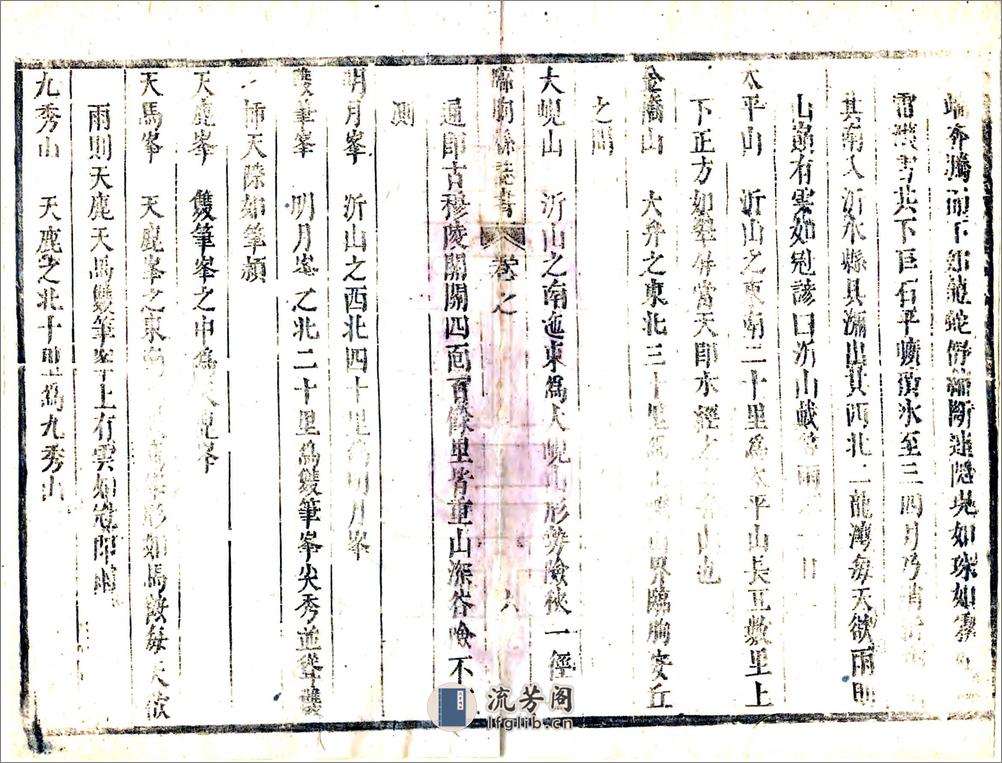 奔騰而下如虺蛇俘藻斷連隱見如珠如
雷噴雪其下巨石平曠積氷至三四月乃消
其南入沂水縣具瀰出其西北二龍灣每天欲雨則
山巔有雲如冠諺曰沂山戴 雨 日
太平山 沂山之東南二十里爲太平山長亘數里上
下正方如翠屏當天卽水經之 山也
大弁之東北三十里爲 界臨朐安丘
之間
大峴山 沂山之南迤東爲大峴山形勢險狹一徑
通卽古穆陵關關四面百餘里皆重山深谷險不
測
臨朐縣誌書 卷之 六
明月峯 沂山之西北四十里爲明月峯
雙筆峯 明月峯之北二十里爲雙筆峯尖秀並聳
插天際如筆穎
天鹿峯 雙筆峯之中爲天鹿峯
天馬峯 天鹿峯之東 峯形如馬 每天欲
雨則天鹿天馬雙筆峯上有雲如冠卽雨
九秀山 天鹿之北十里爲九秀山
流芳阁
lfglib.cn